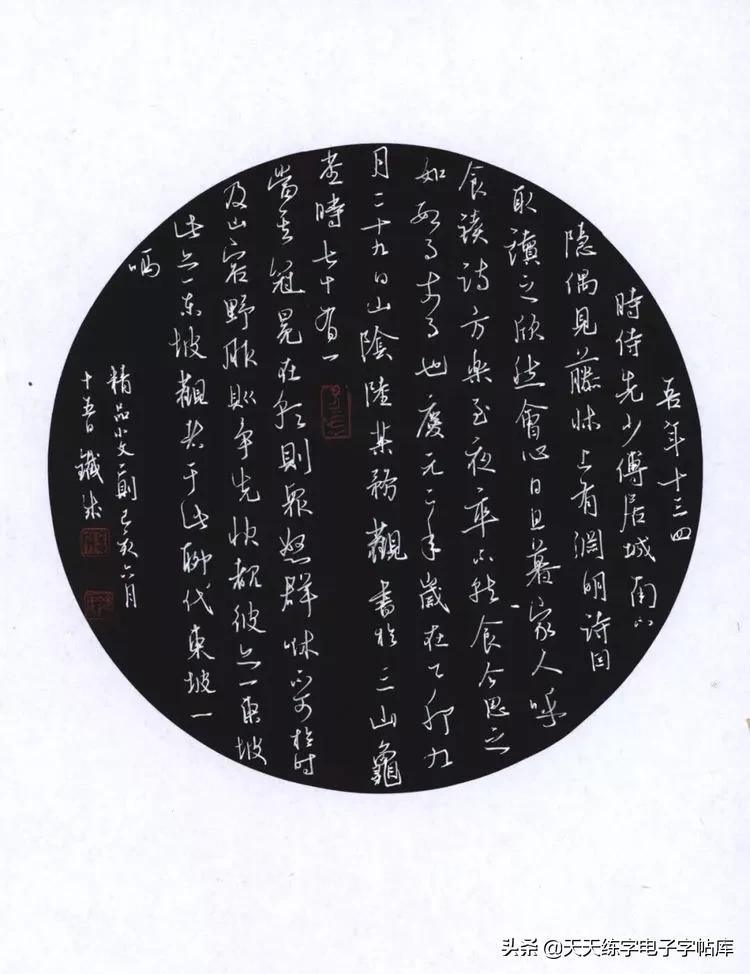 吾年十三四
時侍先少傅居城南小
隱偶見藤床上有淵明詩因
取讀之欣然會心日且暮家人呼
食读詩方樂至夜卒不就食今思之
如數日前事也慶元二年歲在乙卯九
月二十九日山陰陸某務觀書於三山龜
堂時七十有一
當其冠冕在朝則眾怒群咻不可於時
及山容野服則爭先快覩彼亦一東坡
此亦一东坡觀者于此聊代東坡一
哂
精品小文二則己亥六月
十
头条 @天天练字电子字帖库